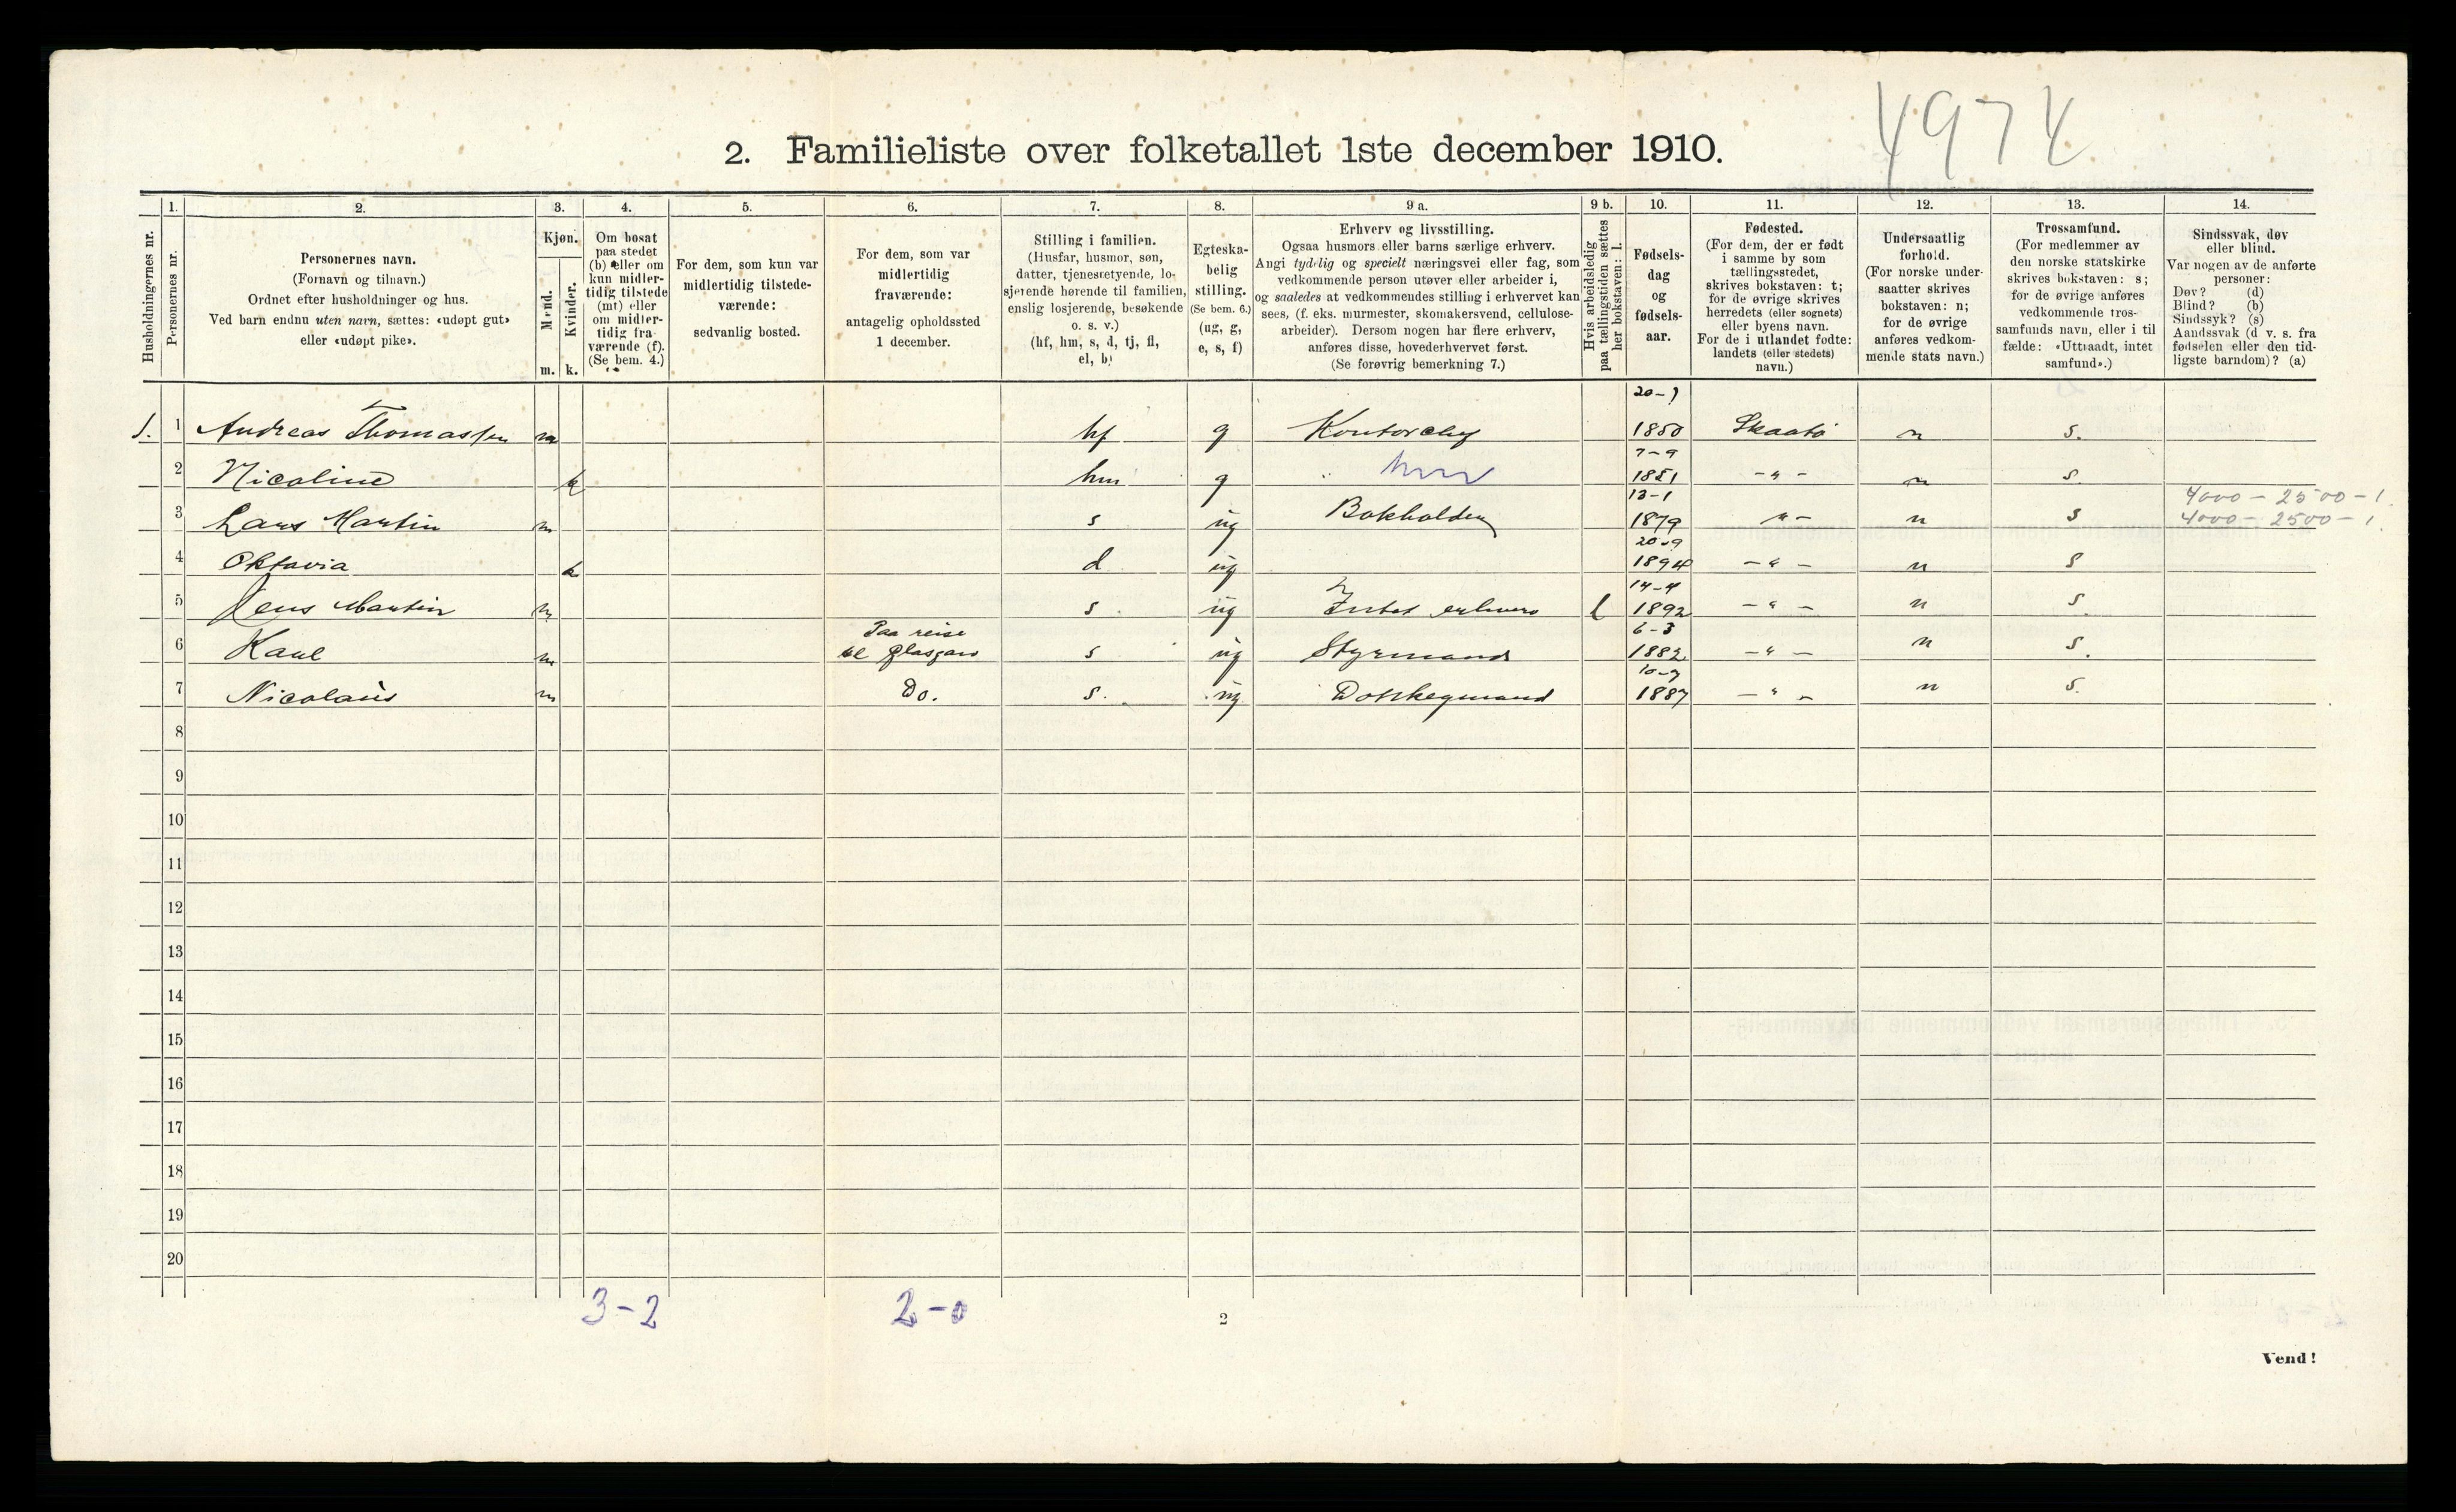 4974
2. Familieliste over folketallet 1ste december 1910.
1. 2. 3. 4. 5. 6. 7. 8. 9 a. 9 b. 10. 11. 12. 13. 14.
Husholdningernes nr.
Personernes nr.
Personernes navn.
(Fornavn og tilnavn.)
Ordnet efter husholdninger og hus.
Ved barn endnu uten navn, sættes: «udøpt gut»
eller «udøpt pike».
Kjøn.
Mænd.
Kvinder.
m. k.
Om bosat
paa stedet
(b) eller om
kun midler-
tidig tilstede
(mt) eller
om midler-
tidig fra-
værende (f).
(Se bem. 4.)
For dem, som kun var
midlertidig tilstede-
værende:
sedvanlig bosted.
For dem, som var
midlertidig
fraværende:
antagelig opholdssted
1 december.
Stilling i familien.
(Husfar, husmor, søn,
datter, tjenestetyende, lo-
sjerende hørende til familien,
enslig losjerende, besøkende
o. s. v.)
(hf, hm, s, d, tj, fl,
el, b)
Egteska-
belig
stilling.
(Se bem. 6.)
(ug, g,
e, s, f)
Erhverv og livsstilling.
Ogsaa husmors eller barns særlige erhverv.
Angi tydelig og specielt næringsvei eller fag, som
vedkommende person utøver eller arbeider i,
og saaledes at vedkommendes stilling i erhvervet kan
sees, (f. eks. murmester, skomakersvend, cellulose-
arbeider). Dersom nogen har flere erhverv,
anføres disse, hovederhvervet først.
(Se forøvrig bemerkning 7.)
Hvis arbeidsledig
paa tællingstiden sættes
her bokstaven: l.
Fødsels-
dag
og
fødsels-
aar.
Fødested.
(For dem, der er født
i samme by som
tællingsstedet,
skrives bokstaven: t;
for de øvrige skrives
herredets (eller sognets)
eller byens navn.
For de i utlandet fødte:
landets (eller stedets)
navn.)
Undersaatlig
forhold.
(For norske under-
saatter skrives
bokstaven: n;
for de øvrige
anføres vedkom-
mende stats navn.)
Trossamfund.
(For medlemmer av
den norske statskirke
skrives bokstaven: s;
for de øvrige anføres
vedkommende tros-
samfunds navn, eller i til
fælde: «Uttraadt, intet
samfund».)
Sindssvak, døv
eller blind.
Var nogen av de anførte
personer:
Døv? (d)
Blind? (b)
Sindssyk? (s)
Aandssvak (d v. s. fra
fødselen eller den tid-
ligste barndom)? (a)
20-7
1. 1 Andreas Thomassen m hf g Kontorchef 1850 Skaatø n s.
7-9
2 Nicoline k hm g hm 1851 -"- n s
13-1 4000 - 2500 - 1.
3 Lars Martin m s ug Bokholder 1879 "- n s 4000 - 2500 - 1.
20-9
4 Oktavia k d ug 1894 -"- n s
14-4
5 Jens Martin m s ug Intet erhverv l 1892 -"- n s.
Paa reise 6-3
6 Karl m til Glasgow s ug Styrmand 1882 -"- n s.
10-7
7 Nicolaus m Do. s. ug 1887 -"- n s.
8
9
10
11
12
13
14
15
16
17
18
19
20
3-2 2-0
2
Vend!